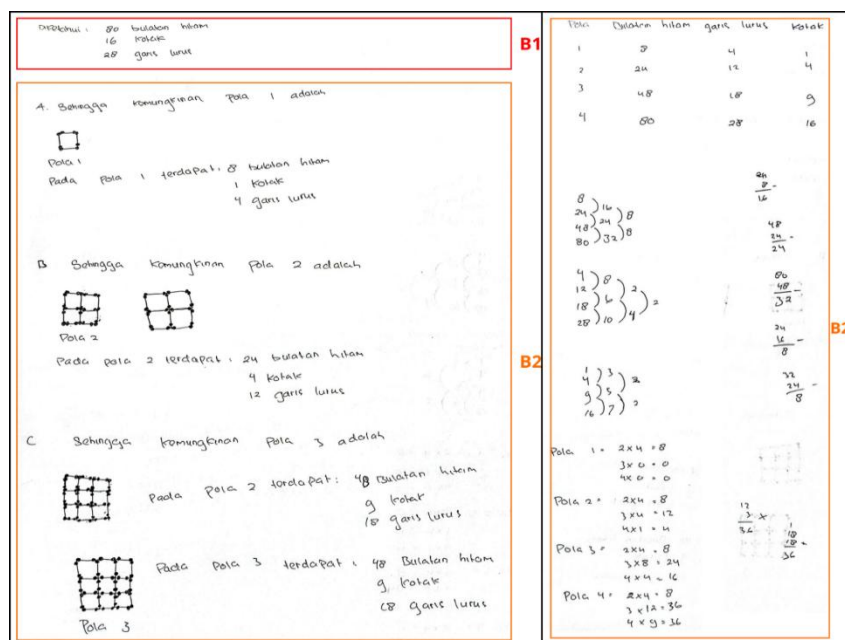 Diketahui : 80 bulatan hitam
16 kotak
28 garis lurus
B1
A. Sehingga komungkinan Pola 1 adalah
Pola 1
Pada Pola 1 terdapat : 8 bulatan hitam
1 kotak
4 garis lurus
B Sehingga komungkinan Pola 2 adalah
Pola 2
Pada pola 2 terdapat : 24 bulatan hitam
4 kotak
12 garis lurus
B2
C Sehingga komungkinan Pola 3 adalah
Pada pola 2 terdapat : 48 Bulatan hitam
9 kotak
18 garis lurus
Pada Pola 3 terdapat : 48 Bulatan hitam
9 kotak
18 garis lurus
Pola 3
Pola Bulatan hitam garis lurus Kotak
1 8 4 1
2 24 12 4
3 48 18 9
4 80 28 16
24
8 -
16
8
24 16
48 24 8
80 32 8
48
24 -
24
4
12 8
18 6 2
28 10 4 2
80
48 -
32
24
16 -
8
1
4 3
9 5 2
16 7 2
32
24 -
8
B2
Pola 1 = 2x4 = 8
3x0 = 0
4x0 = 0
Pola 2 = 2x4 = 8
3x4 = 12
4x1 = 4
12
3 x
36
Pola 3 = 2x4 = 8
3x8 = 24
4x4 = 16
Pola 4 = 2x4 = 8
3x12 = 36
4x9 = 36